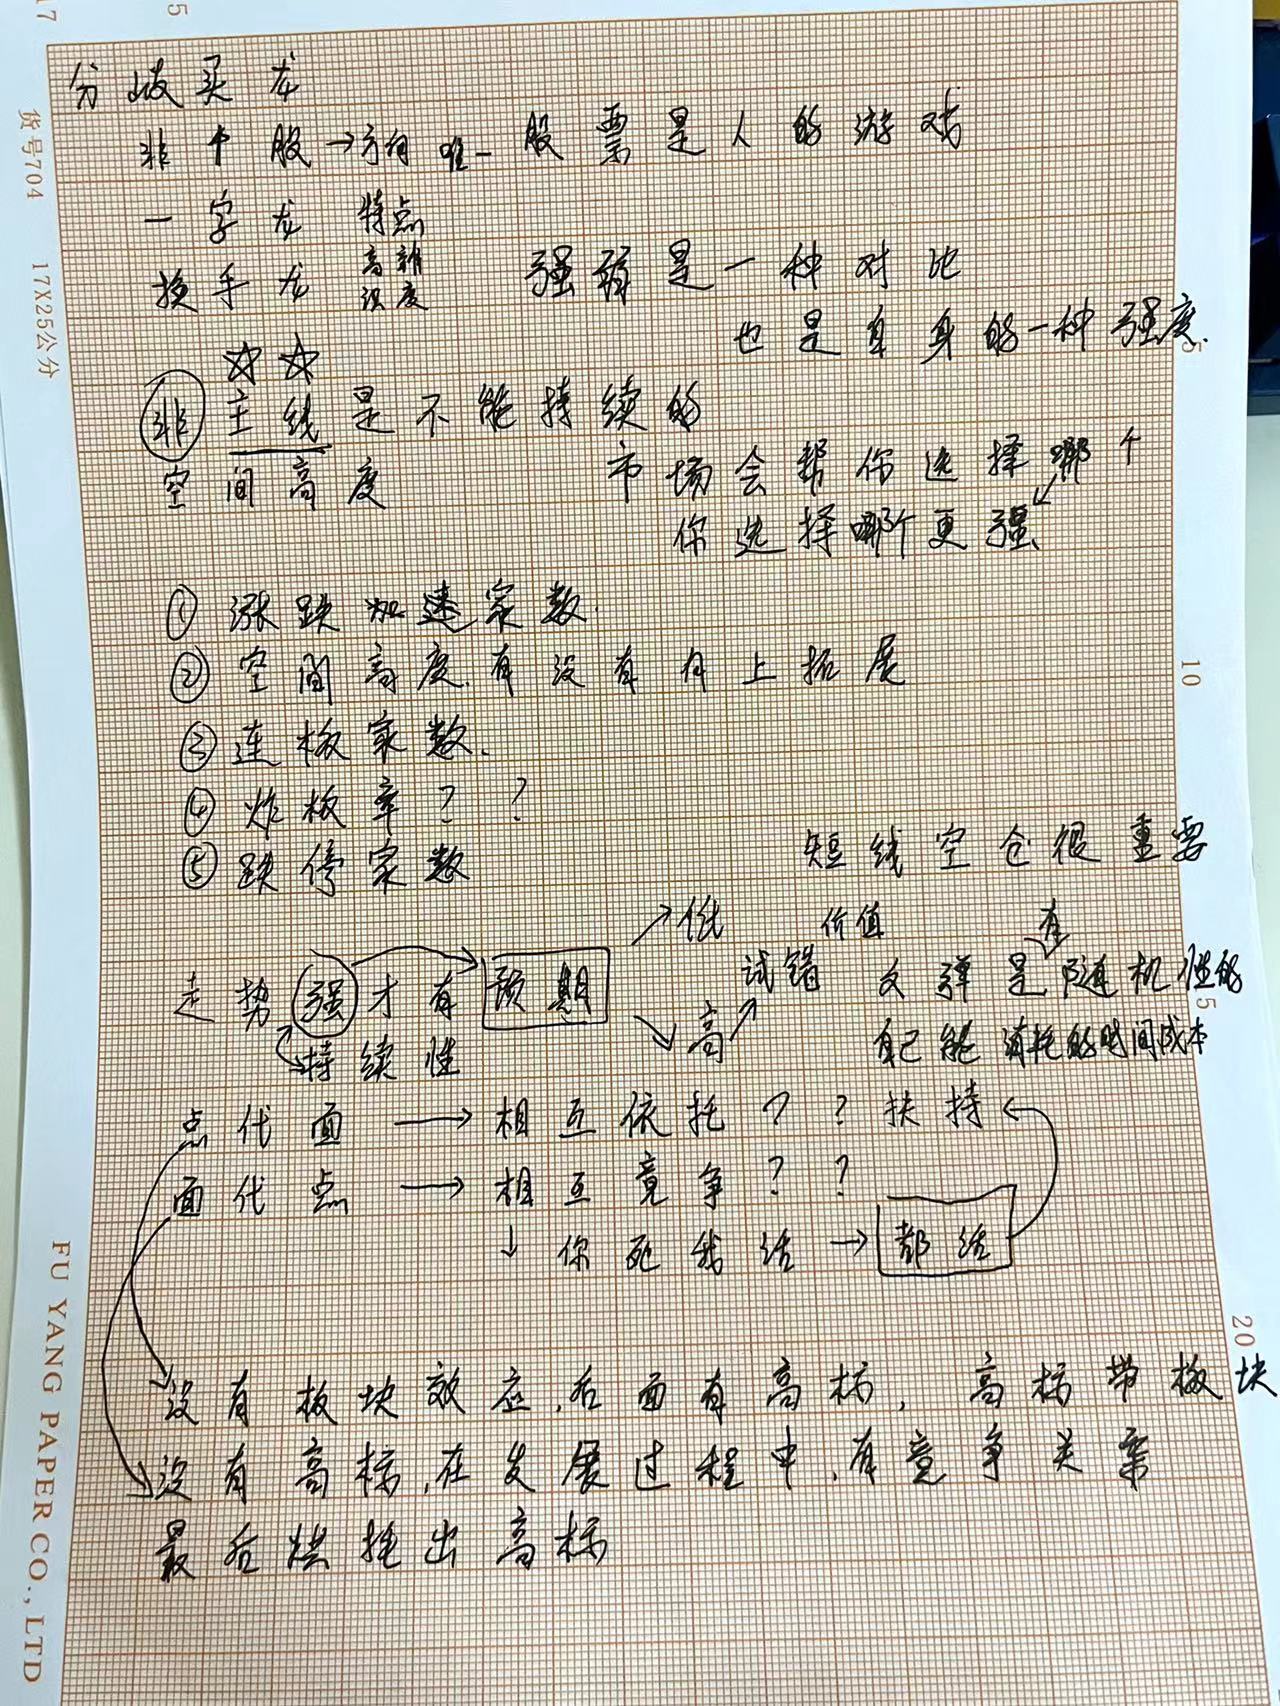 17
5
货号704 17X25公分
FU YANG PAPER CO., LTD
5
10
5
20
分歧买龙
非个股→方向 唯一 股票是人的游戏
一字龙 特点
换手龙 高辨识度
强弱是一种对比
也是自身的一种强度
非主线是不能持续的
空间高度
市场会帮你选择哪个
你选择哪个更强
① 涨跌加速家数.
② 空间高度.有没有向上拓展
③ 连板家数.
④ 炸板率??
⑤ 跌停家数
短线空仓很重要
走势强才有预期
持续性
→低
→高
试错
价值
有
反弹是随机性的
自己能消耗的时间成本
点代面→相互依托??扶持
面代点→相互竞争??
↓你死我活→都活
没有板块效应.后面有高标, 高标带板块
没有高标.在发展过程中.有竞争关系
最后烘托出高标